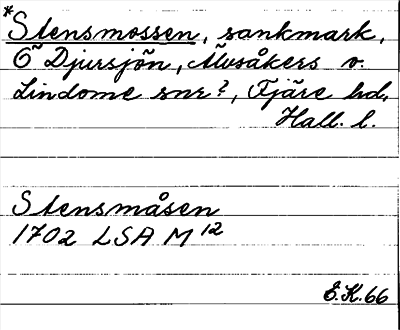 *Stensmossen, sankmark,
Ö Djursjön, Älvsåkers o.
Lindome snr?, Fjäre hd,
Hall. l.
Stensmåsen
1702 LSA M 12
E.K. 66